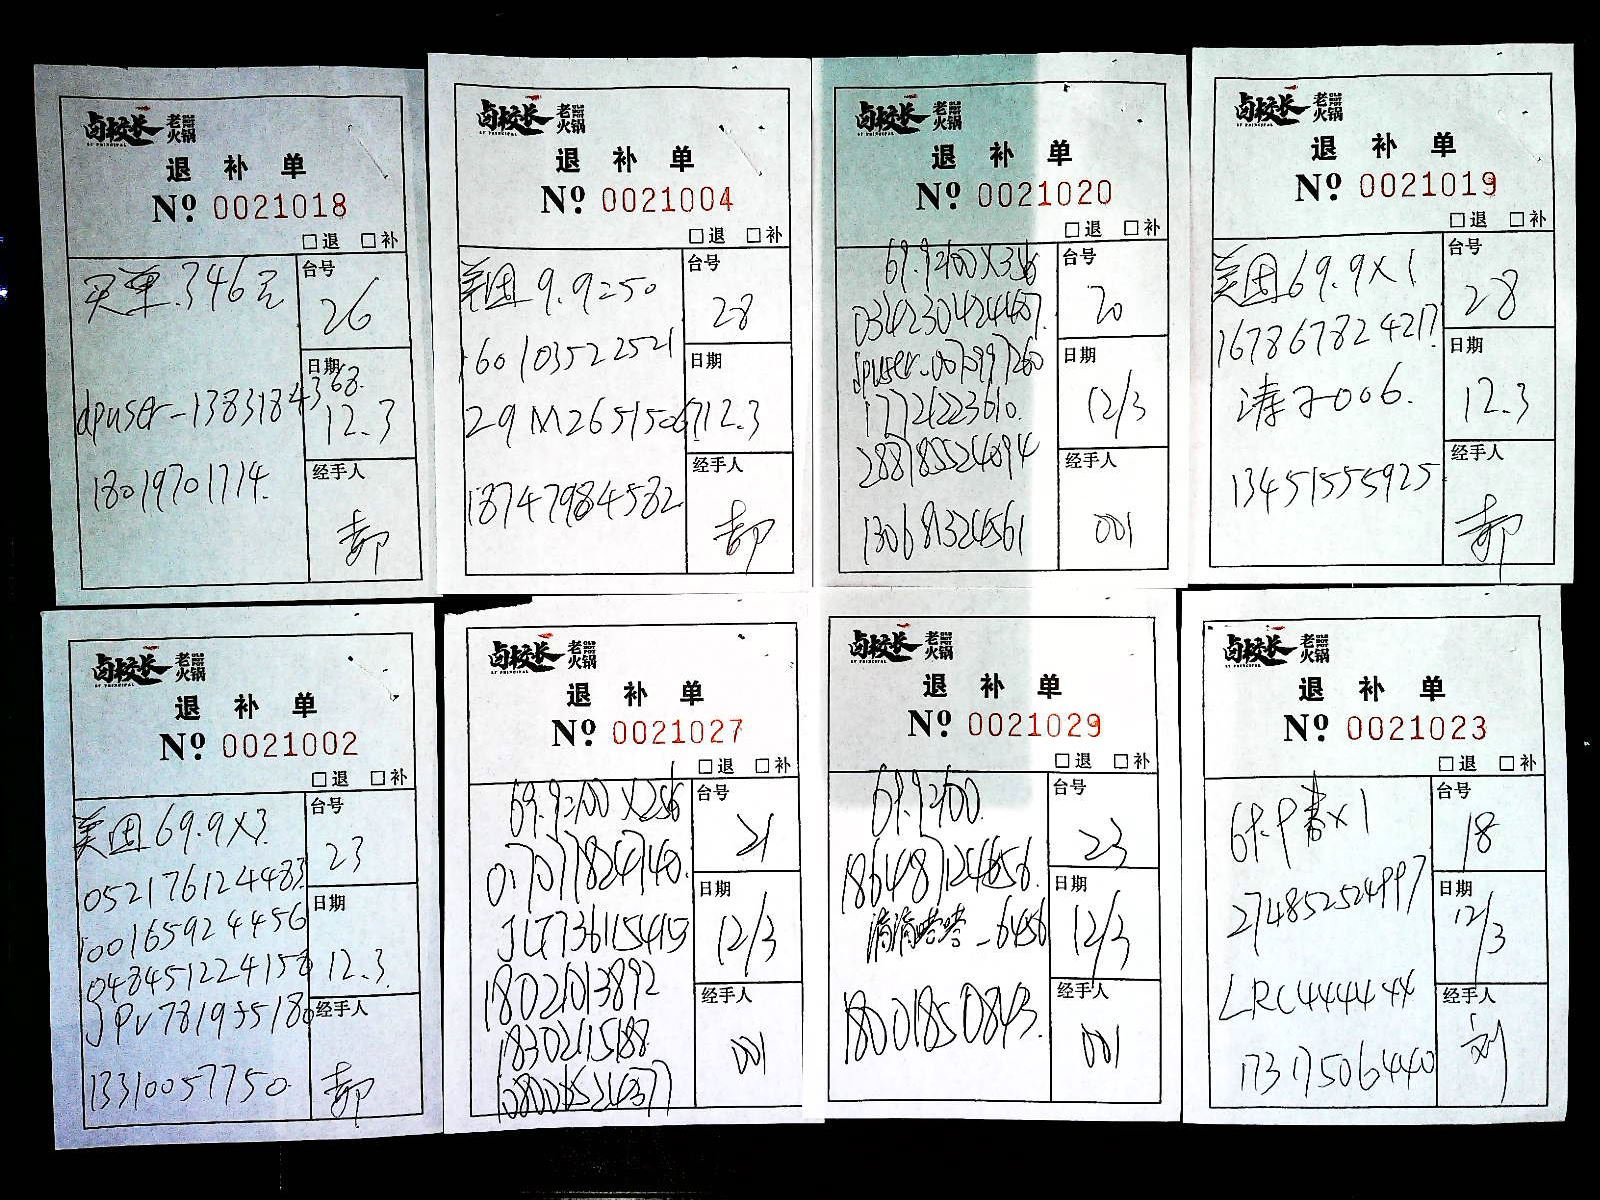 卤校长 老火锅
LU PRINCIPAL
退 补 单
Nº 0021018
□退 □补
买单.346元
台号
26
日期
12.3
dpuser-13831844368.
18019701714.
经手人
郝
卤校长 老火锅
退 补 单
Nº 0021004
□退 □补
美团 9.9=50
台号
28
16010352 2521
日期
12.3
29M26515067
18747984582
经手人
郝
卤校长 老火锅
退 补 单
Nº 0021020
□退 □补
69.9=100×3
台号
20
034230424407.
日期
12/3
17721223610.
288785524094
经手人
001
13068324561
卤校长 老火锅
退 补 单
Nº 0021019
□退 □补
美团69.9×1
台号
28
167867824217
日期
12.3
涛子006.
13451555925
经手人
郝
卤校长 老火锅
LU PRINCIPAL
退 补 单
Nº 0021002
□退 □补
美团69.9×3
台号
23
052176124483
日期
12.3
100165924456
048451224158
JPV781955180
经手人
郝
13310057750
卤校长 老火锅
LU PRINCIPAL
退 补 单
Nº 0021027
□退 □补
69.9=100×2
台号
21
017077824740.
日期
12/3
JLT7361154415
18021013892
经手人
001
18302115188
108006524377
卤校长 老火锅
LU PRINCIPAL
退 补 单
Nº 0021029
□退 □补
69.9=100.
台号
23
186487124656.
日期
12/3
滴滴嗒嗒_6456
18001850843.
经手人
001
卤校长 老火锅
LU PRINCIPAL
退 补 单
Nº 0021023
□退 □补
69.9套×1
台号
18
274852524997
日期
12/3
LRC444444
17317506440
经手人
刘